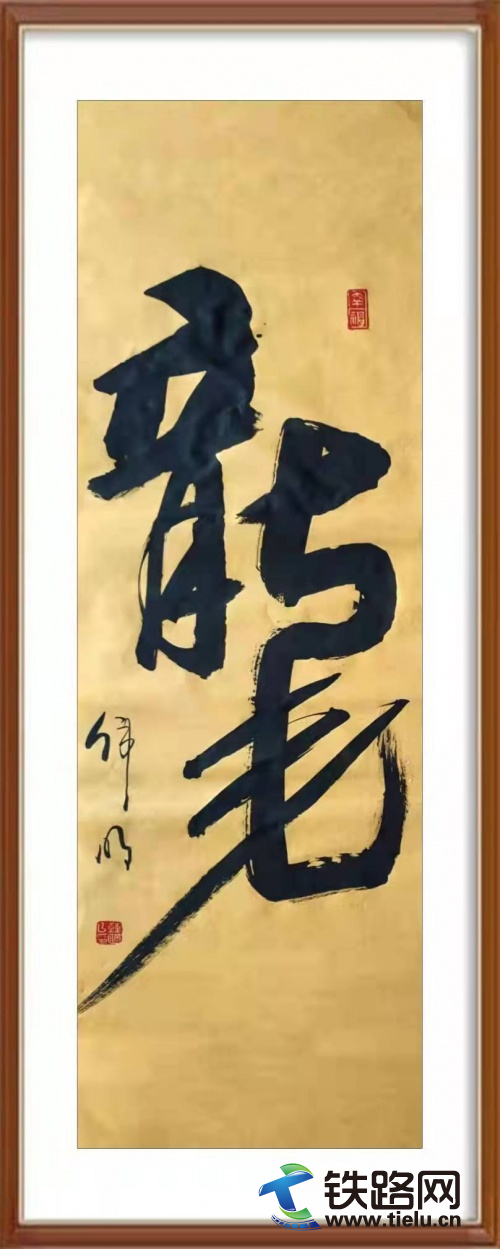 龍
伟明
铁路网
www.tielu.cn